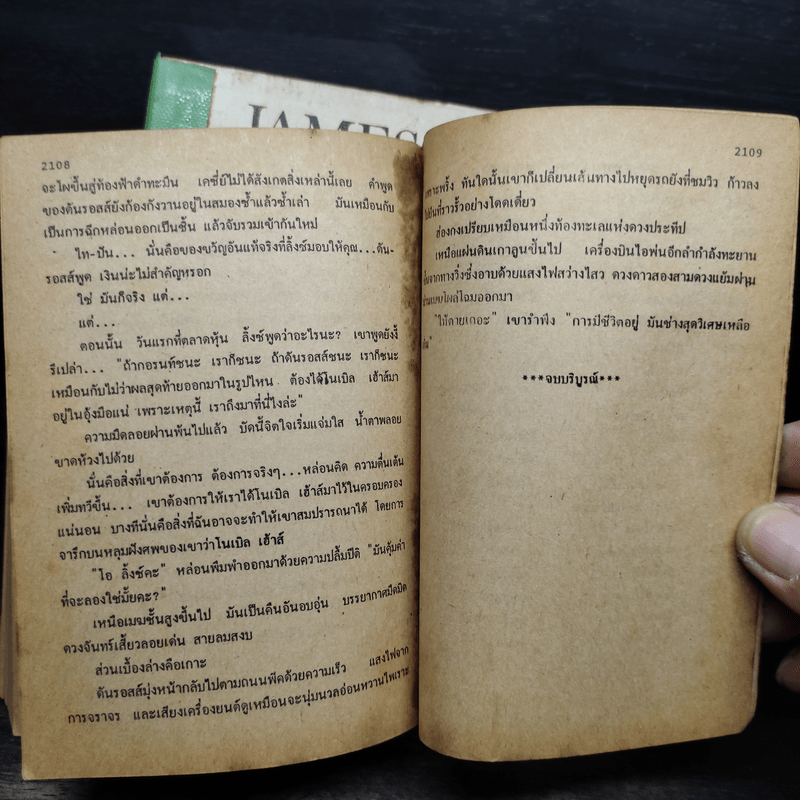 JAMES
2108
จะโผขึ้นสู่ท้องฟ้าดำทะมึน เคซี่ย์ไม่ได้สังเกตสิ่งเหล่านี้เลย คำพูด
ของดันรอสส์ยังก้องกังวานอยู่ในสมองซ้ำแล้วซ้ำเล่า มันเหมือนกับ
เป็นการฉีกหล่อนออกเป็นชิ้น แล้วจับรวมเข้ากันใหม่
ไท-ปัน... นั่นคือของขวัญอันแท้จริงที่ลิ้งซ์มอบให้คุณ...ดัน-
รอสส์พูด เงินน่ะไม่สำคัญหรอก
ใช่ มันก็จริง แต่...
แต่...
ตอนนั้น วันแรกที่ตลาดหุ้น ลิ้งซ์พูดว่าอะไรนะ? เขาพูดยังงี้
รึเปล่า... "ถ้ากอรนท์ชนะ เราก็ชนะ ถ้าดันรอสส์ชนะ เราก็ชนะ
เหมือนกับไม่ว่าผลสุดท้ายออกมาในรูปไหน ต้องได้โนเบิล เฮ้าส์มา
อยู่ในอุ้งมือแน่ เพราะเหตุนี้ เราถึงมาที่นี่ไงล่ะ"
ความมืดลอยผ่านพ้นไปแล้ว บัดนี้จิตใจเริ่มแจ่มใส น้ำตาพลอย
ขาดห้วงไปด้วย
นั่นคือสิ่งที่เขาต้องการ ต้องการจริงๆ...หล่อนคิด ความตื่นเต้น
เพิ่มทวีขึ้น... เขาต้องการให้เราได้โนเบิล เฮ้าส์มาไว้ในครอบครอง
แน่นอน บางทีนั่นคือสิ่งที่ฉันอาจจะทำให้เขาสมปรารถนาได้ โดยการ
จารึกบนหลุมฝังศพของเขาว่าโนเบิล เฮ้าส์
"โอ ลิ้งช์คะ" หล่อนพึมพำออกมาด้วยความปลื้มปีติ "มันคุ้มค่า
ที่จะลองใช่มั้ยคะ?"
เหนือเมฆชั้นสูงขึ้นไป มันเป็นคืนอันอบอุ่น บรรยากาศมืดมิด
ดวงจันทร์เสี้ยวลอยเด่น สายลมสงบ
ส่วนเบื้องล่างคือเกาะ
ดันรอสส์มุ่งหน้ากลับไปตามถนนพีคด้วยความเร็ว แสงไฟจาก
การจราจร และเสียงเครื่องยนต์ดูเหมือนจะนุ่มนวลอ่อนหวานไพเราะ
2109
เพราะพริ้ง ทันใดนั้นเขาก็เปลี่ยนเส้นทางไปหยุดรถยังที่ชมวิว ก้าวลง
ที่ราวรั้วอย่างโดดเดี่ยว
ฮ่องกงเปรียบเหมือนหนึ่งท้องทะเลแห่งดวงประทีป
เหนือแผ่นดินเกาลูนขึ้นไป เครื่องบินไอพ่นอีกลำกำลังทะยาน
จากทางวิ่งซึ่งอาบด้วยแสงไฟสว่างไสว ดวงดาวสองสามดวงแย้มผ่าน
โผล่โฉมออกมา
เขารำพึง "การมีชีวิตอยู่ มันช่างสุดวิเศษเหลือ
***จบบริบูรณ์***